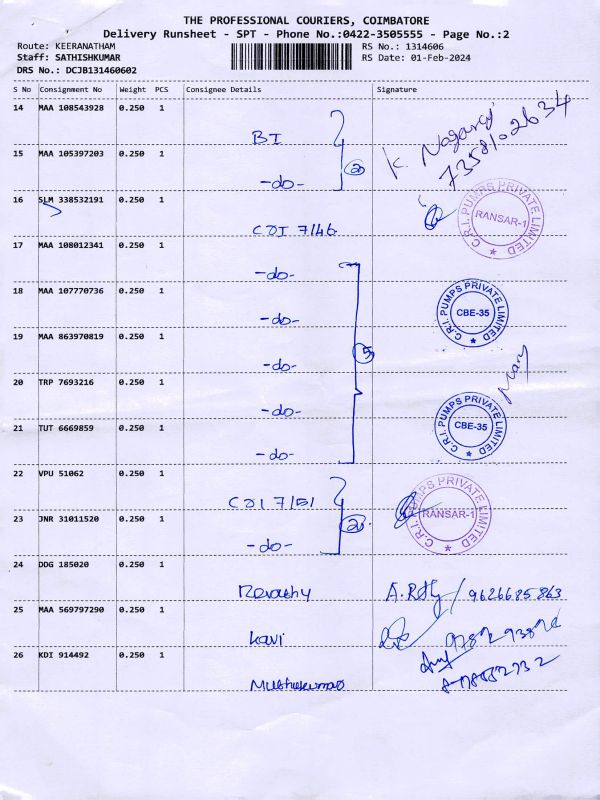 THE PROFESSIONAL COURIERS, COIMBATORE
Delivery Runsheet - SPT - Phone No.:0422-3505555 - Page No.:2
Route: KEERANATHAM
RS No.: 1314606
Staff: SATHISHKUMAR
RS Date: 01-Feb-2024
DRS No.: DCJB131460602
S No Consignment No Weight PCS Consignee Details Signature
14 MAA 108543928 0.250 1
BI
K. Nagaraj
7358102634
15 MAA 105397203 0.250 1
-do-
2
16 SLM 338532191 0.250 1
C.R.I. PUMPS PRIVATE LIMITED
RANSAR-1
17 MAA 108012341 0.250 1
-do-
18 MAA 107770736 0.250 1
-do-
C.R.I. PUMPS PRIVATE LIMITED
CBE-35
19 MAA 863970819 0.250 1
-do-
5
20 TRP 7693216 0.250 1
-do-
21 TUT 6669859 0.250 1
-do-
C.R.I. PUMPS PRIVATE LIMITED
CBE-35
22 VPU 51062 0.250 1
23 JNR 31011520 0.250 1
-do-
2
C.R.I. PUMPS PRIVATE LIMITED
RANSAR-1
24 DDG 185020 0.250 1
Revathy
9626685863
25 MAA 569797290 0.250 1
Kavi
26 KDI 914492 0.250 1
Muthukumar